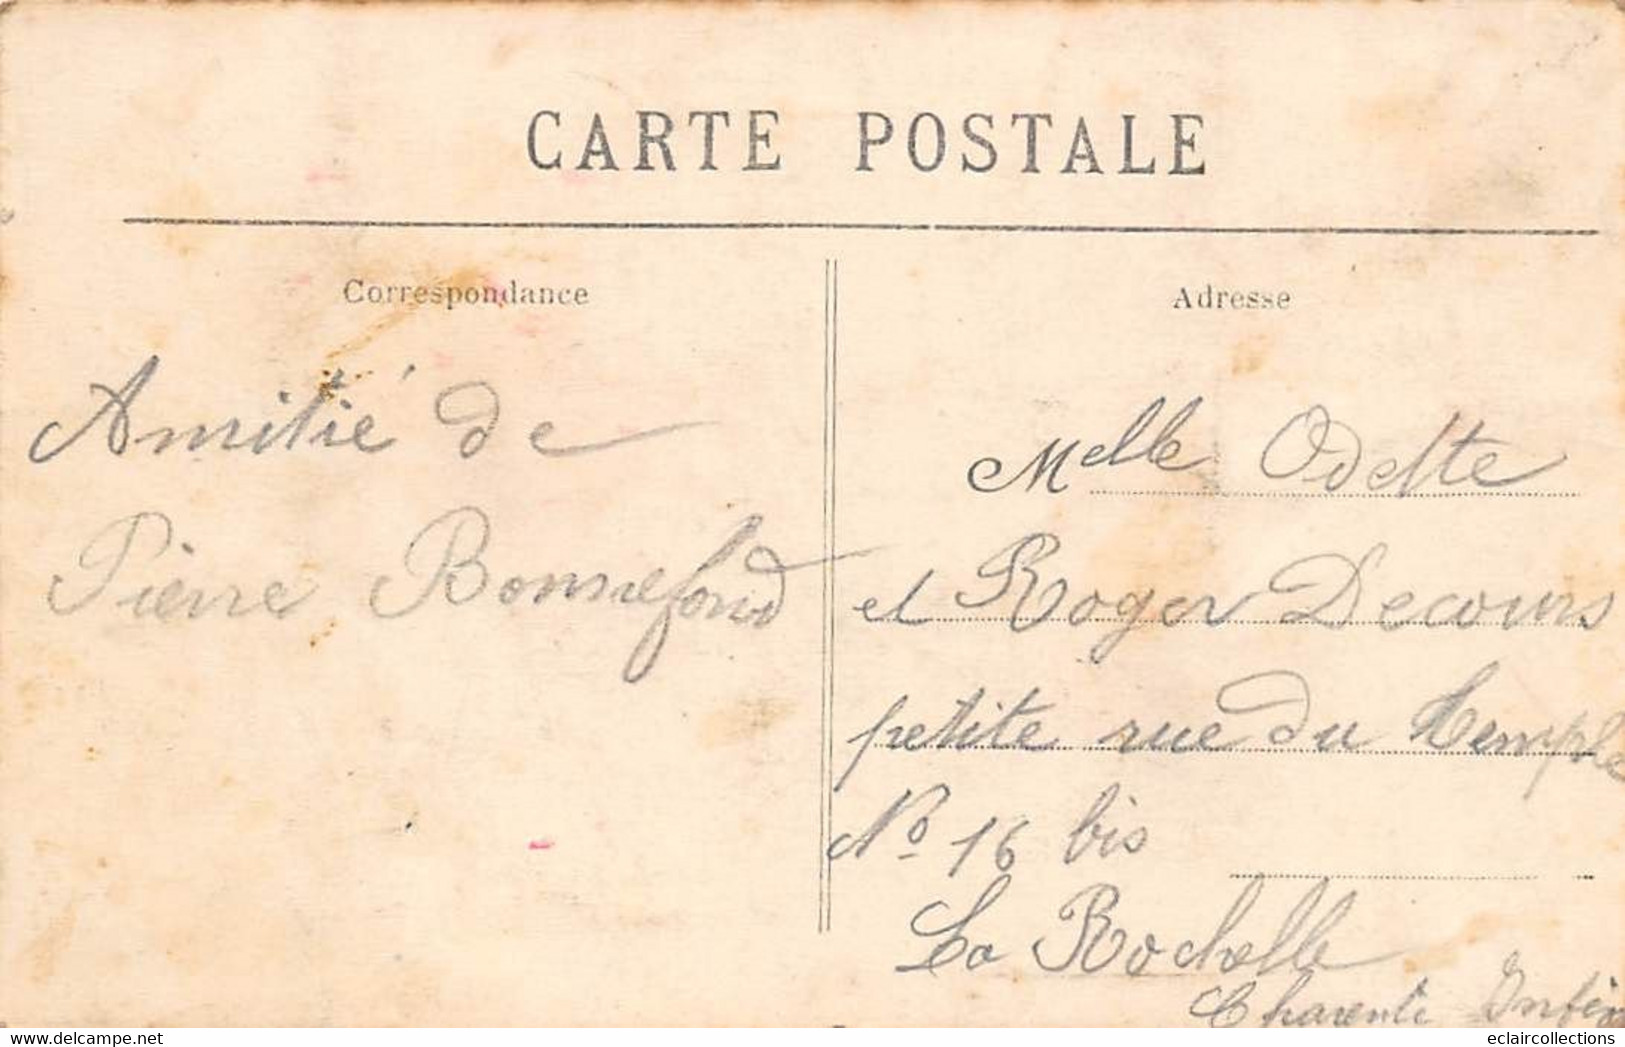 CARTE POSTALE
Correspondance
Adresse
Amitié de
Pierre Bonnefond
Melle Odette
et Roger Decours
petite rue du Temple
No 16 bis
La Rochelle
Charente Infér
www.delcampe.net
eclaircollections